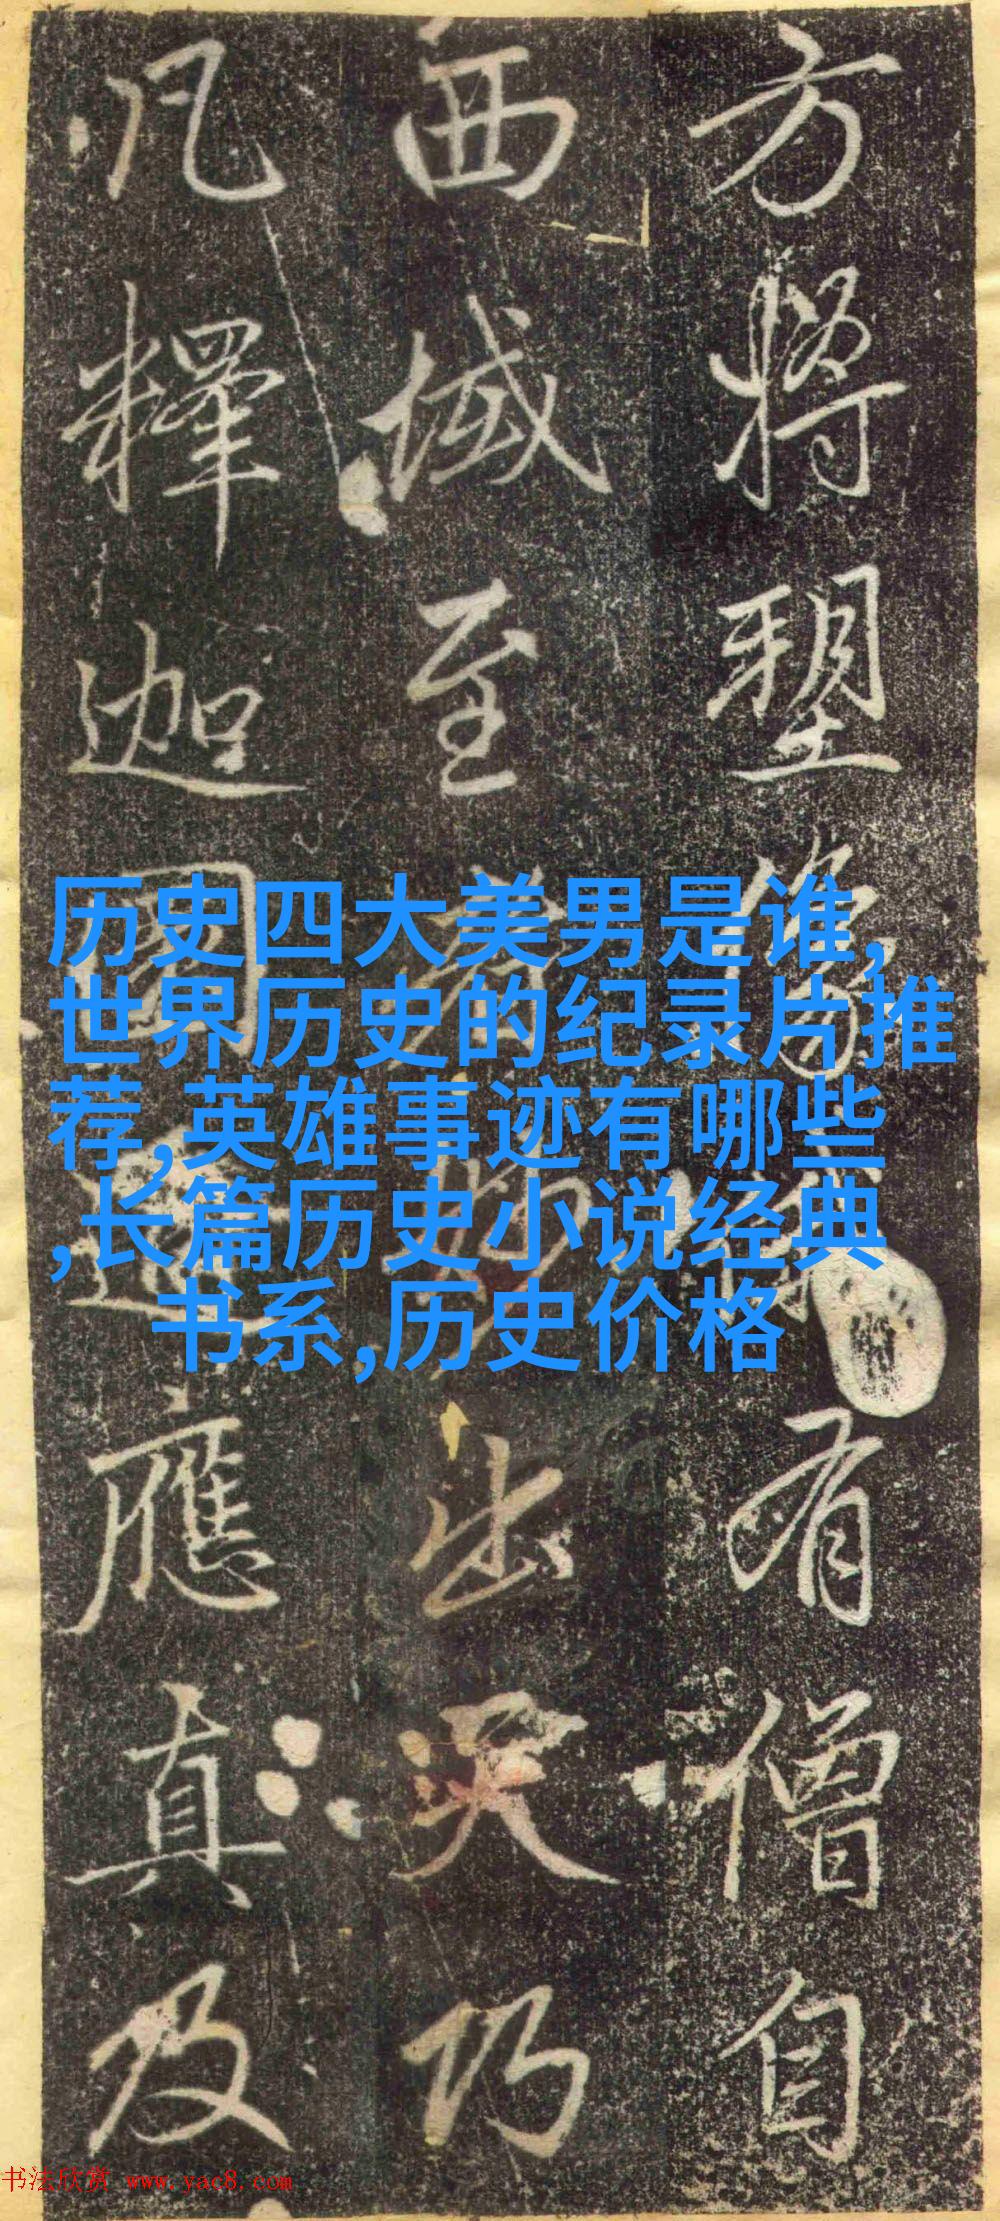 方將塑像有僧自
西域至者妙出天巧
凡釋迦國應真及
历史四大美男是谁,
世界历史的纪录片推
荐,英雄事迹有哪些
,长篇历史小说经典
书系,历史价格
书法欣赏 www.yac8.com